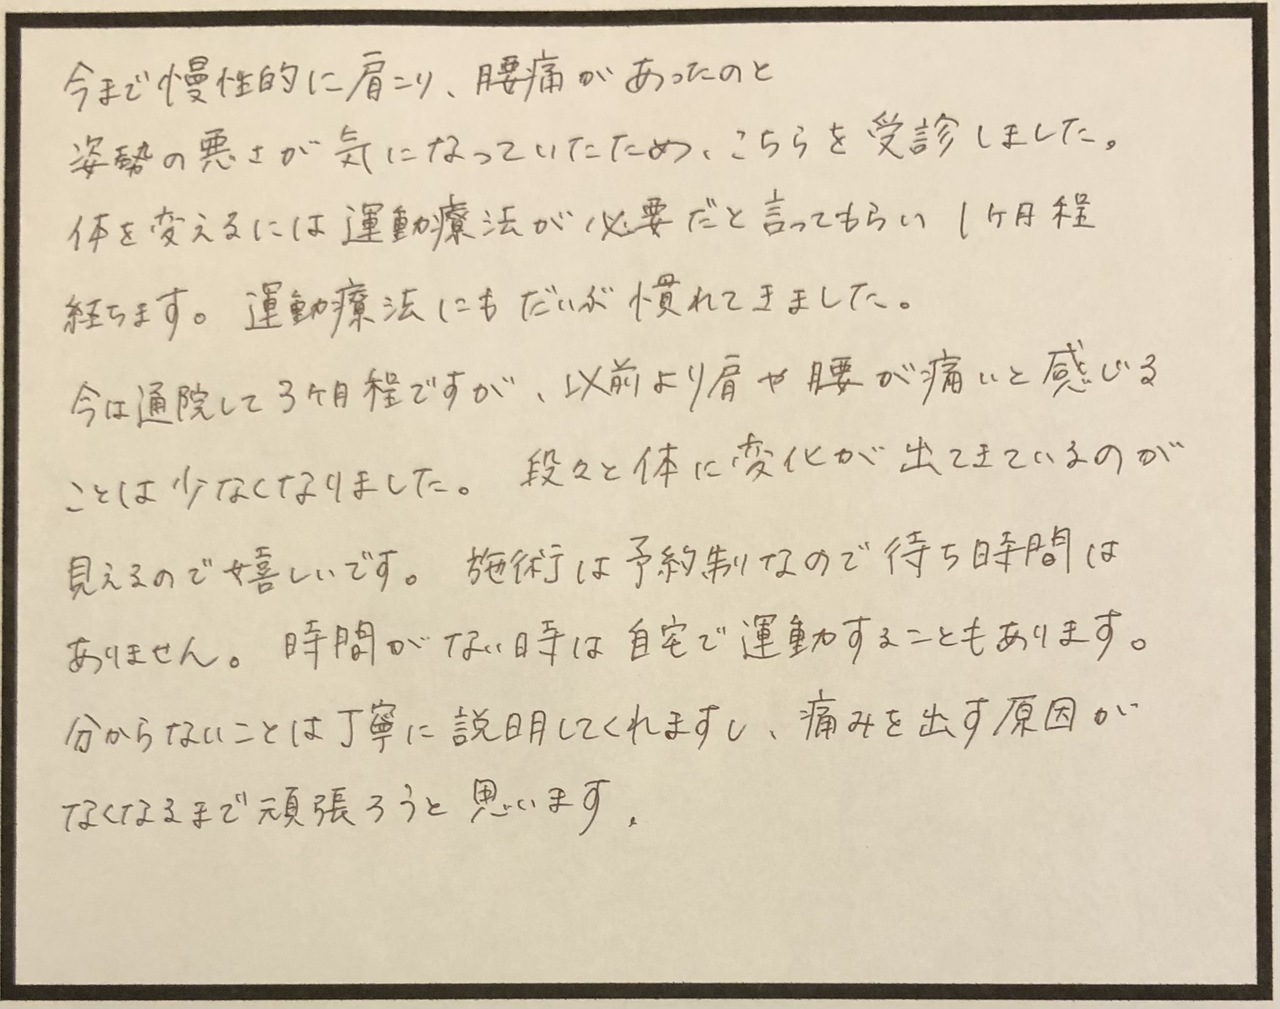 今まで慢性的に肩こり、腰痛があったのと
姿勢の悪さが気になっていたため、こちらを受診しました。
体を変えるには運動療法が必要だと言ってもらい 1ヶ月程
経ちます。運動療法にもだいぶ慣れてきました。
今は通院して3ヶ月程ですが、以前より肩や腰が痛いと感じる
ことは少なくなりました。段々と体に変化が出てきているのが
見えるので嬉しいです。施術は予約制なので待ち時間は
ありません。時間がない時は自宅で運動することもあります。
分からないことは丁寧に説明してくれますし、痛みを出す原因が
なくなるまで頑張ろうと思います.